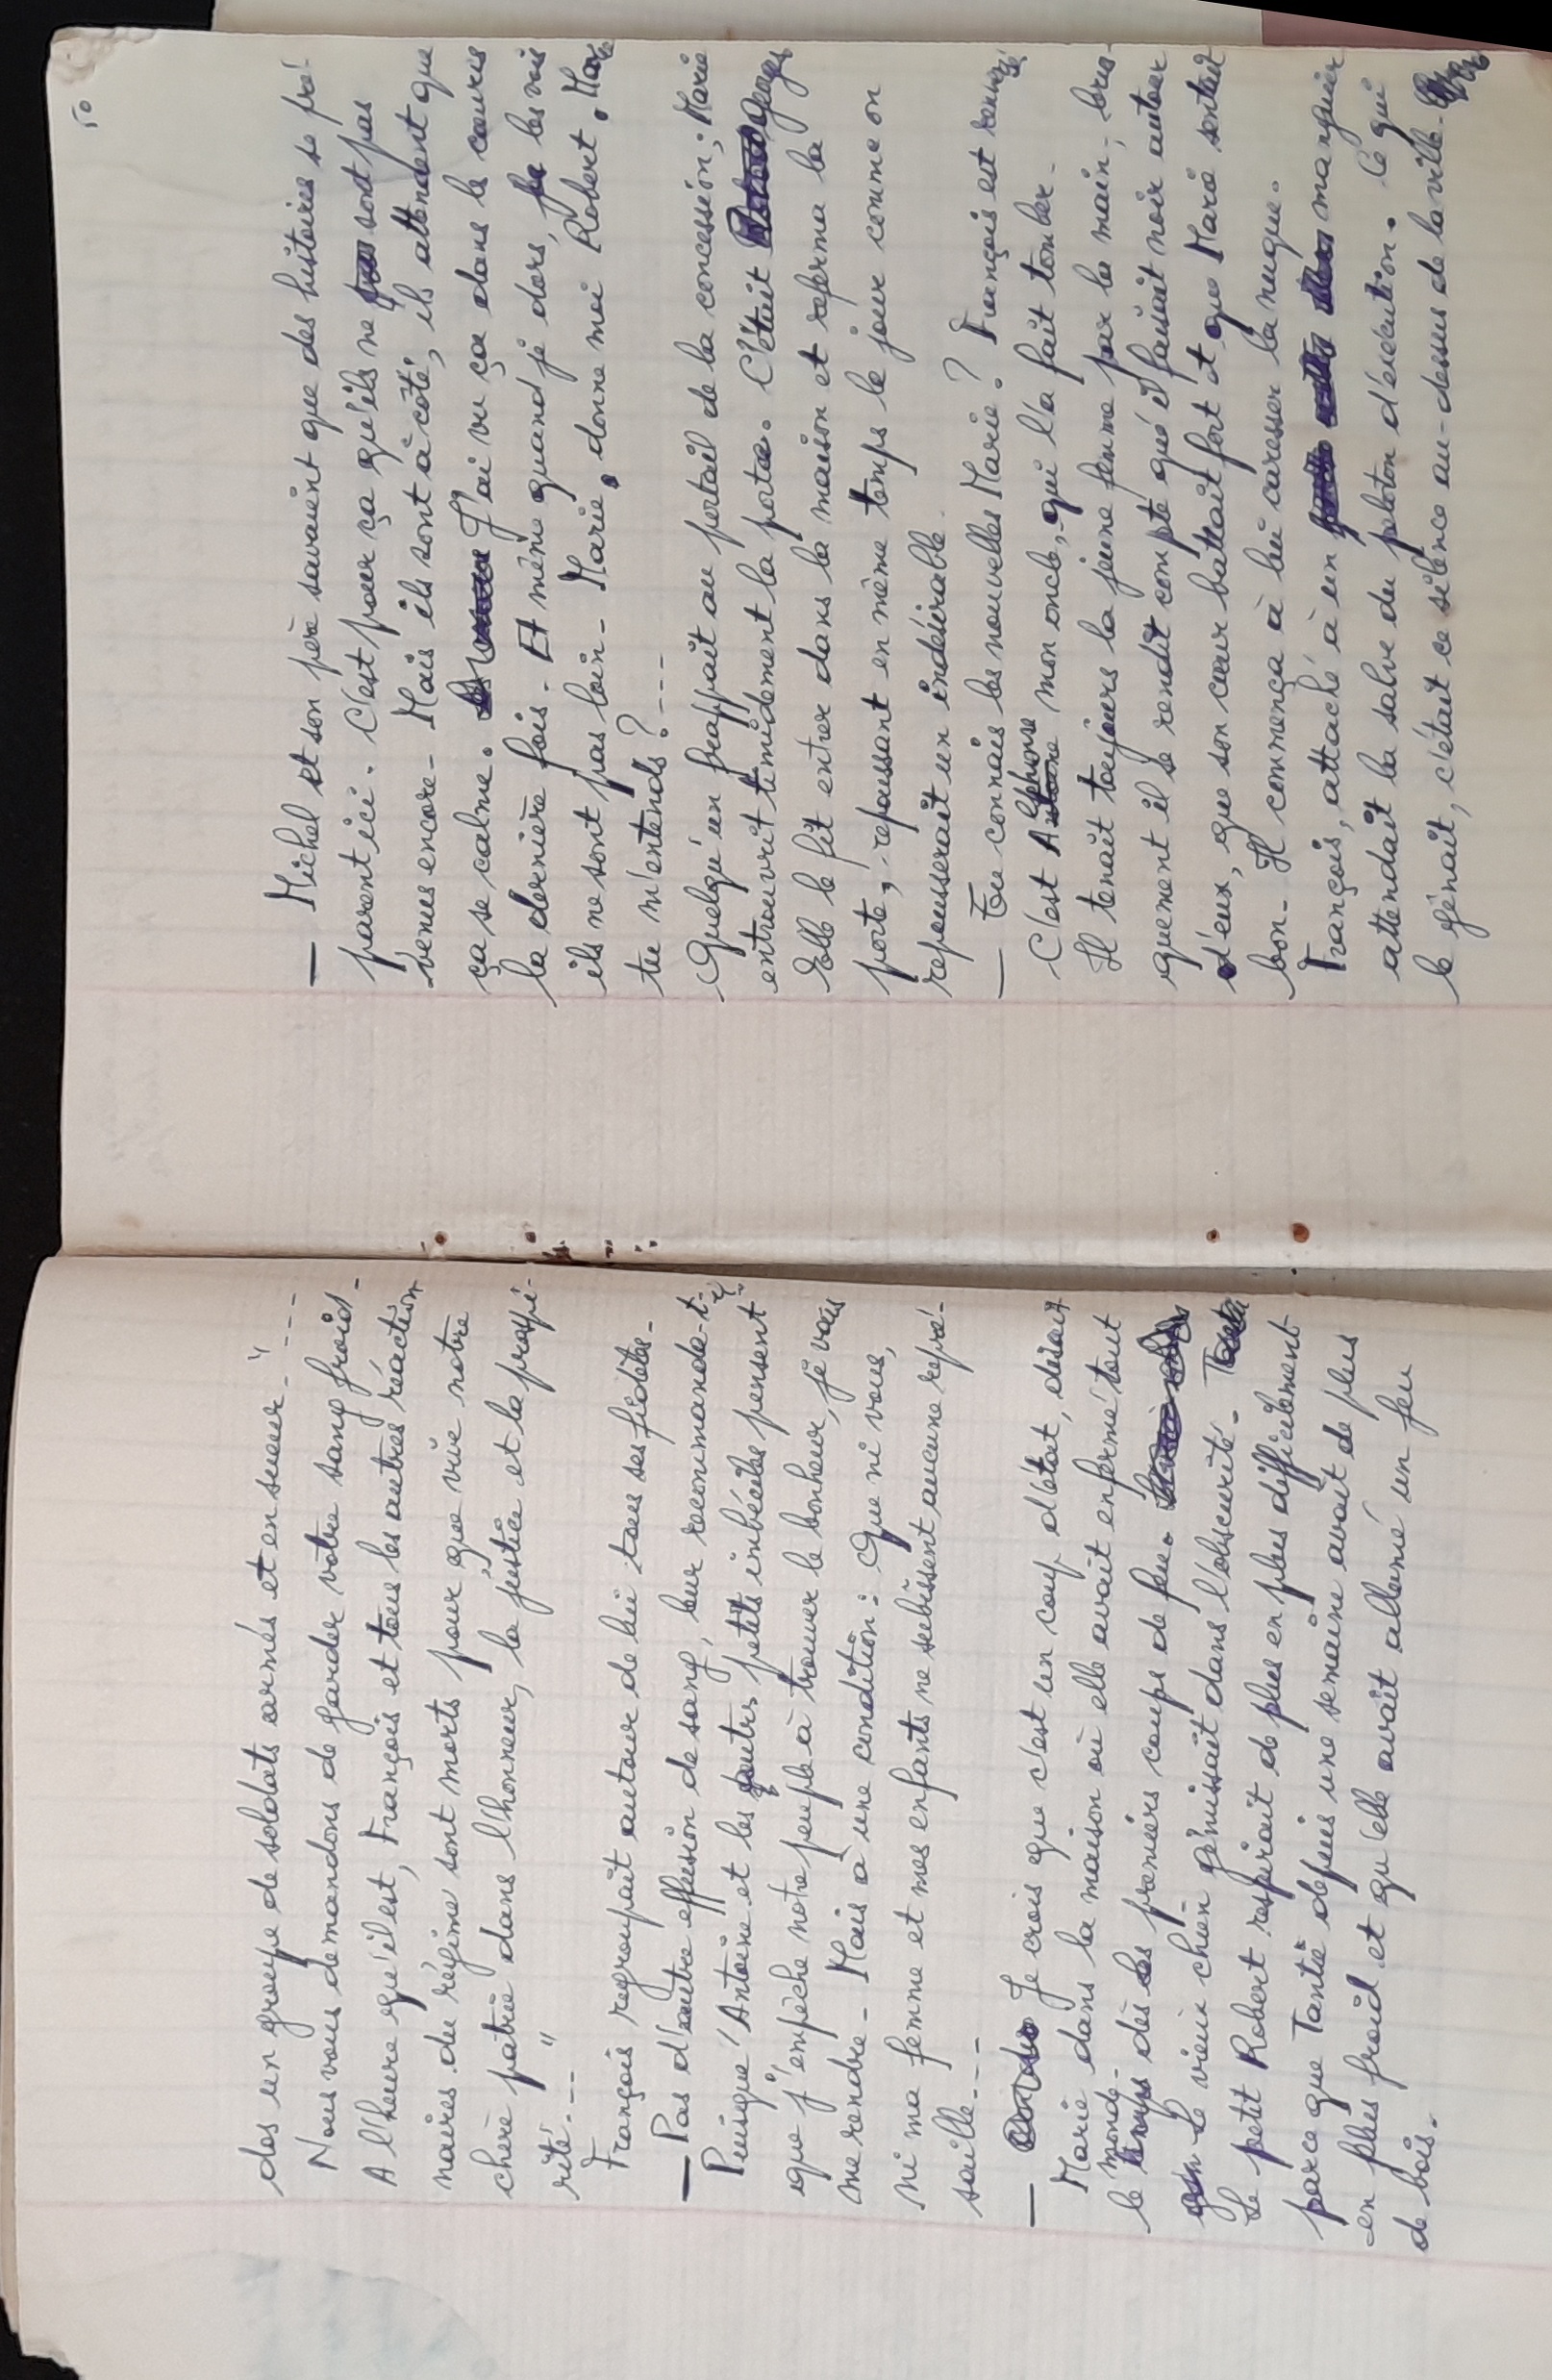 dos un groupe de soldats armés et en sueur - " - - -
Nous vous demandons de garder votre sang froid -
A l'heure qu'il est, François et tous les autres réaction
naires du régime sont morts pour que vive notre
chère patrie dans l'honneur, la justice et la prospé-
rité. - - "
François regroupait autour de lui tous ses fidèles -
— Pas d'autre effusion de sang, leur recommanda-t-il
Puisque Antoine et les autres petits imbéciles pensent
que j'empêche notre peuple à trouver le bonheur, je vais
me rendre - Mais à une condition : Que ni vous,
ni ma femme et mes enfants ne subissent aucune repré-
saille - - -
— Je crois que c'est un coup d'état, disait
Marie dans la maison où elle avait enfermé tout
le monde dès les premiers coups de feu.
Le vieux chien gémissait dans l'obscurité -
Le petit Robert respirait de plus en plus difficilement
parce que Tantie depuis une semaine avait de plus
en plus froid et qu'elle avait allumé un feu
de bois.
10
— Michel et son père savaient que des histoires se pré-
parent ici. C'est pour ça qu'ils ne sont pas
venus encore - Mais ils sont à côté, ils attendent que
ça se calme. J'ai vu ça dans le cauris
la dernière fois - Et même quand je dors, je les vois
ils ne sont pas loin - Marie, donne moi Robert. Marie
tu m'entends ? - - -
Quelqu'un frappait au portail de la concession ; Marie
entrouvrit timidement la porte. C'était Georges
Elle le fit entrer dans la maison et referma la
porte, repoussant en même temps le jour comme on
repousserait un indésirable.
— Tu connais les nouvelles Marie ? François est renversé
C'est Alphonse mon oncle, qui l'a fait tomber -
Il tenait toujours la jeune femme par la main, brus-
quement il se rendit compte qu'il faisait noir autour
d'eux, que son cœur battait fort et que Marie sentait
bon - Il commença à lui caresser la nuque.
François, attaché à un manguier
attendait la salve du peloton d'exécution. Ce qui
le gênait, c'était ce silence au-dessus de la ville -